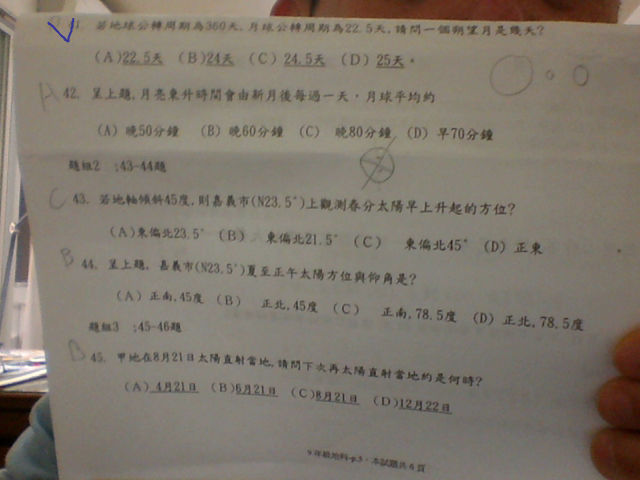 若地球公轉周期為360天,月球公轉周期為22.5天,請問一個朔望月是幾天?
(A)22.5天 (B)24天 (C) 24.5天 (D) 25天。
A 42. 呈上題,月亮東升時間會由新月後每過一天,月球平均約
(A) 晚50分鐘 (B) 晚60分鐘 (C) 晚80分鐘 (D) 早70分鐘
題組2 :43-44題
C 43. 若地軸傾斜45度,則嘉義市(N23.5°)上觀測春分太陽早上升起的方位?
(A)東偏北23.5° (B) 東偏北21.5° (C) 東偏北45° (D) 正東
B 44. 呈上題, 嘉義市(N23.5°)夏至正午太陽方位與仰角是?
(A) 正南,45度 (B) 正北,45度 (C) 正南,78.5度 (D) 正北,78.5度
題組3 :45-46題
B 45. 甲地在8月21日太陽直射當地,請問下次再太陽直射當地約是何時?
(A) 4月21日 (B)6月21日 (C)8月21日 (D)12月22日
9年級地科-p.5,本試題共6頁